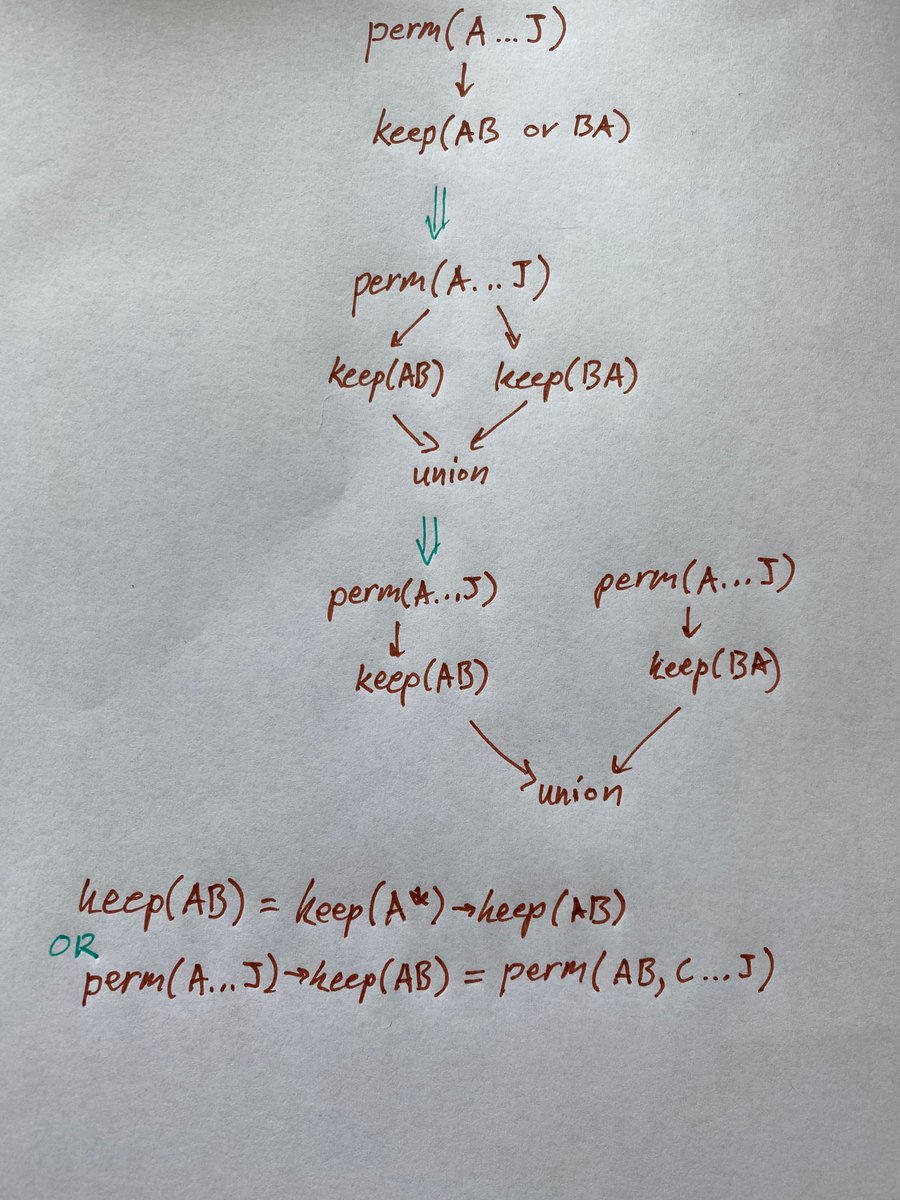 perm(A...J)
↓
keep(AB or BA)
⇓
perm(A...J)
↙ ↘
keep(AB) keep(BA)
↘ ↙
union
⇓
perm(A...J) perm(A...J)
↓ ↓
keep(AB) keep(BA)
↘ ↙
union
keep(AB) = keep(A*)→keep(AB)
OR
perm(A...J)→keep(AB) = perm(AB, C...J)